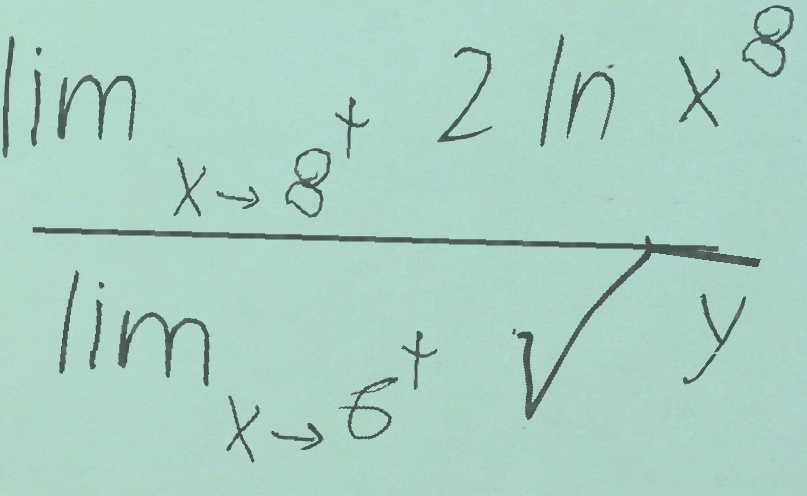 \frac{\lim_{x \to 8^+} 2 \ln x^8}{\lim_{x \to 6^+} \sqrt{y}}